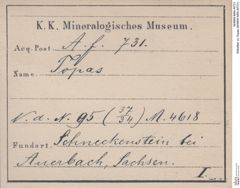 K. K. Mineralogisches Museum.
Acq. Post A. f. 731.
Name Topas
V. d. N. 95 (37/34) M. 4618
Fundort Schneckenstein bei
Auerbach, Sachsen.
I.